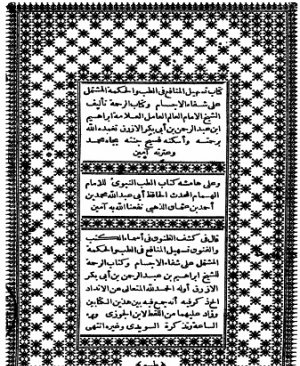 كتاب تسهيل المنافع في الطب والحكمة المشتمل
على شفاء الاجسام وكتاب الرحمة تأليف
الشيخ الامام العالم العامل العلامة ابراهيم
ابن عبد الرحمن بن أبي بكر الازرق تغمده الله
برحمته وأسكنه فسيح جنته بجاه محمد
وعترته آمين
وعلى هامشه كتاب الطب النبوى للامام
الهمام المحدث الحافظ أبي عبد الله محمد بن
أحمد بن عثمان الذهبي نفعنا الله به آمين
قال في كشف الظنون في أسماء الكتب
والفنون تسهيل المنافع في الطب والحكمة
المشتمل على شفاء الاجسام وكتاب الرحمة
للشيخ ابراهيم بن عبد الرحمن بن أبي بكر
الازرق أوله الحمد لله المتعالى عن الانداد
الخ ذكر فيه أنه جمع فيه بين هذين الكتابين
وزاد عليهما من اللقط لابن الجوزى وبرء
الساعة وتذكرة السويدى وغيره انتهى